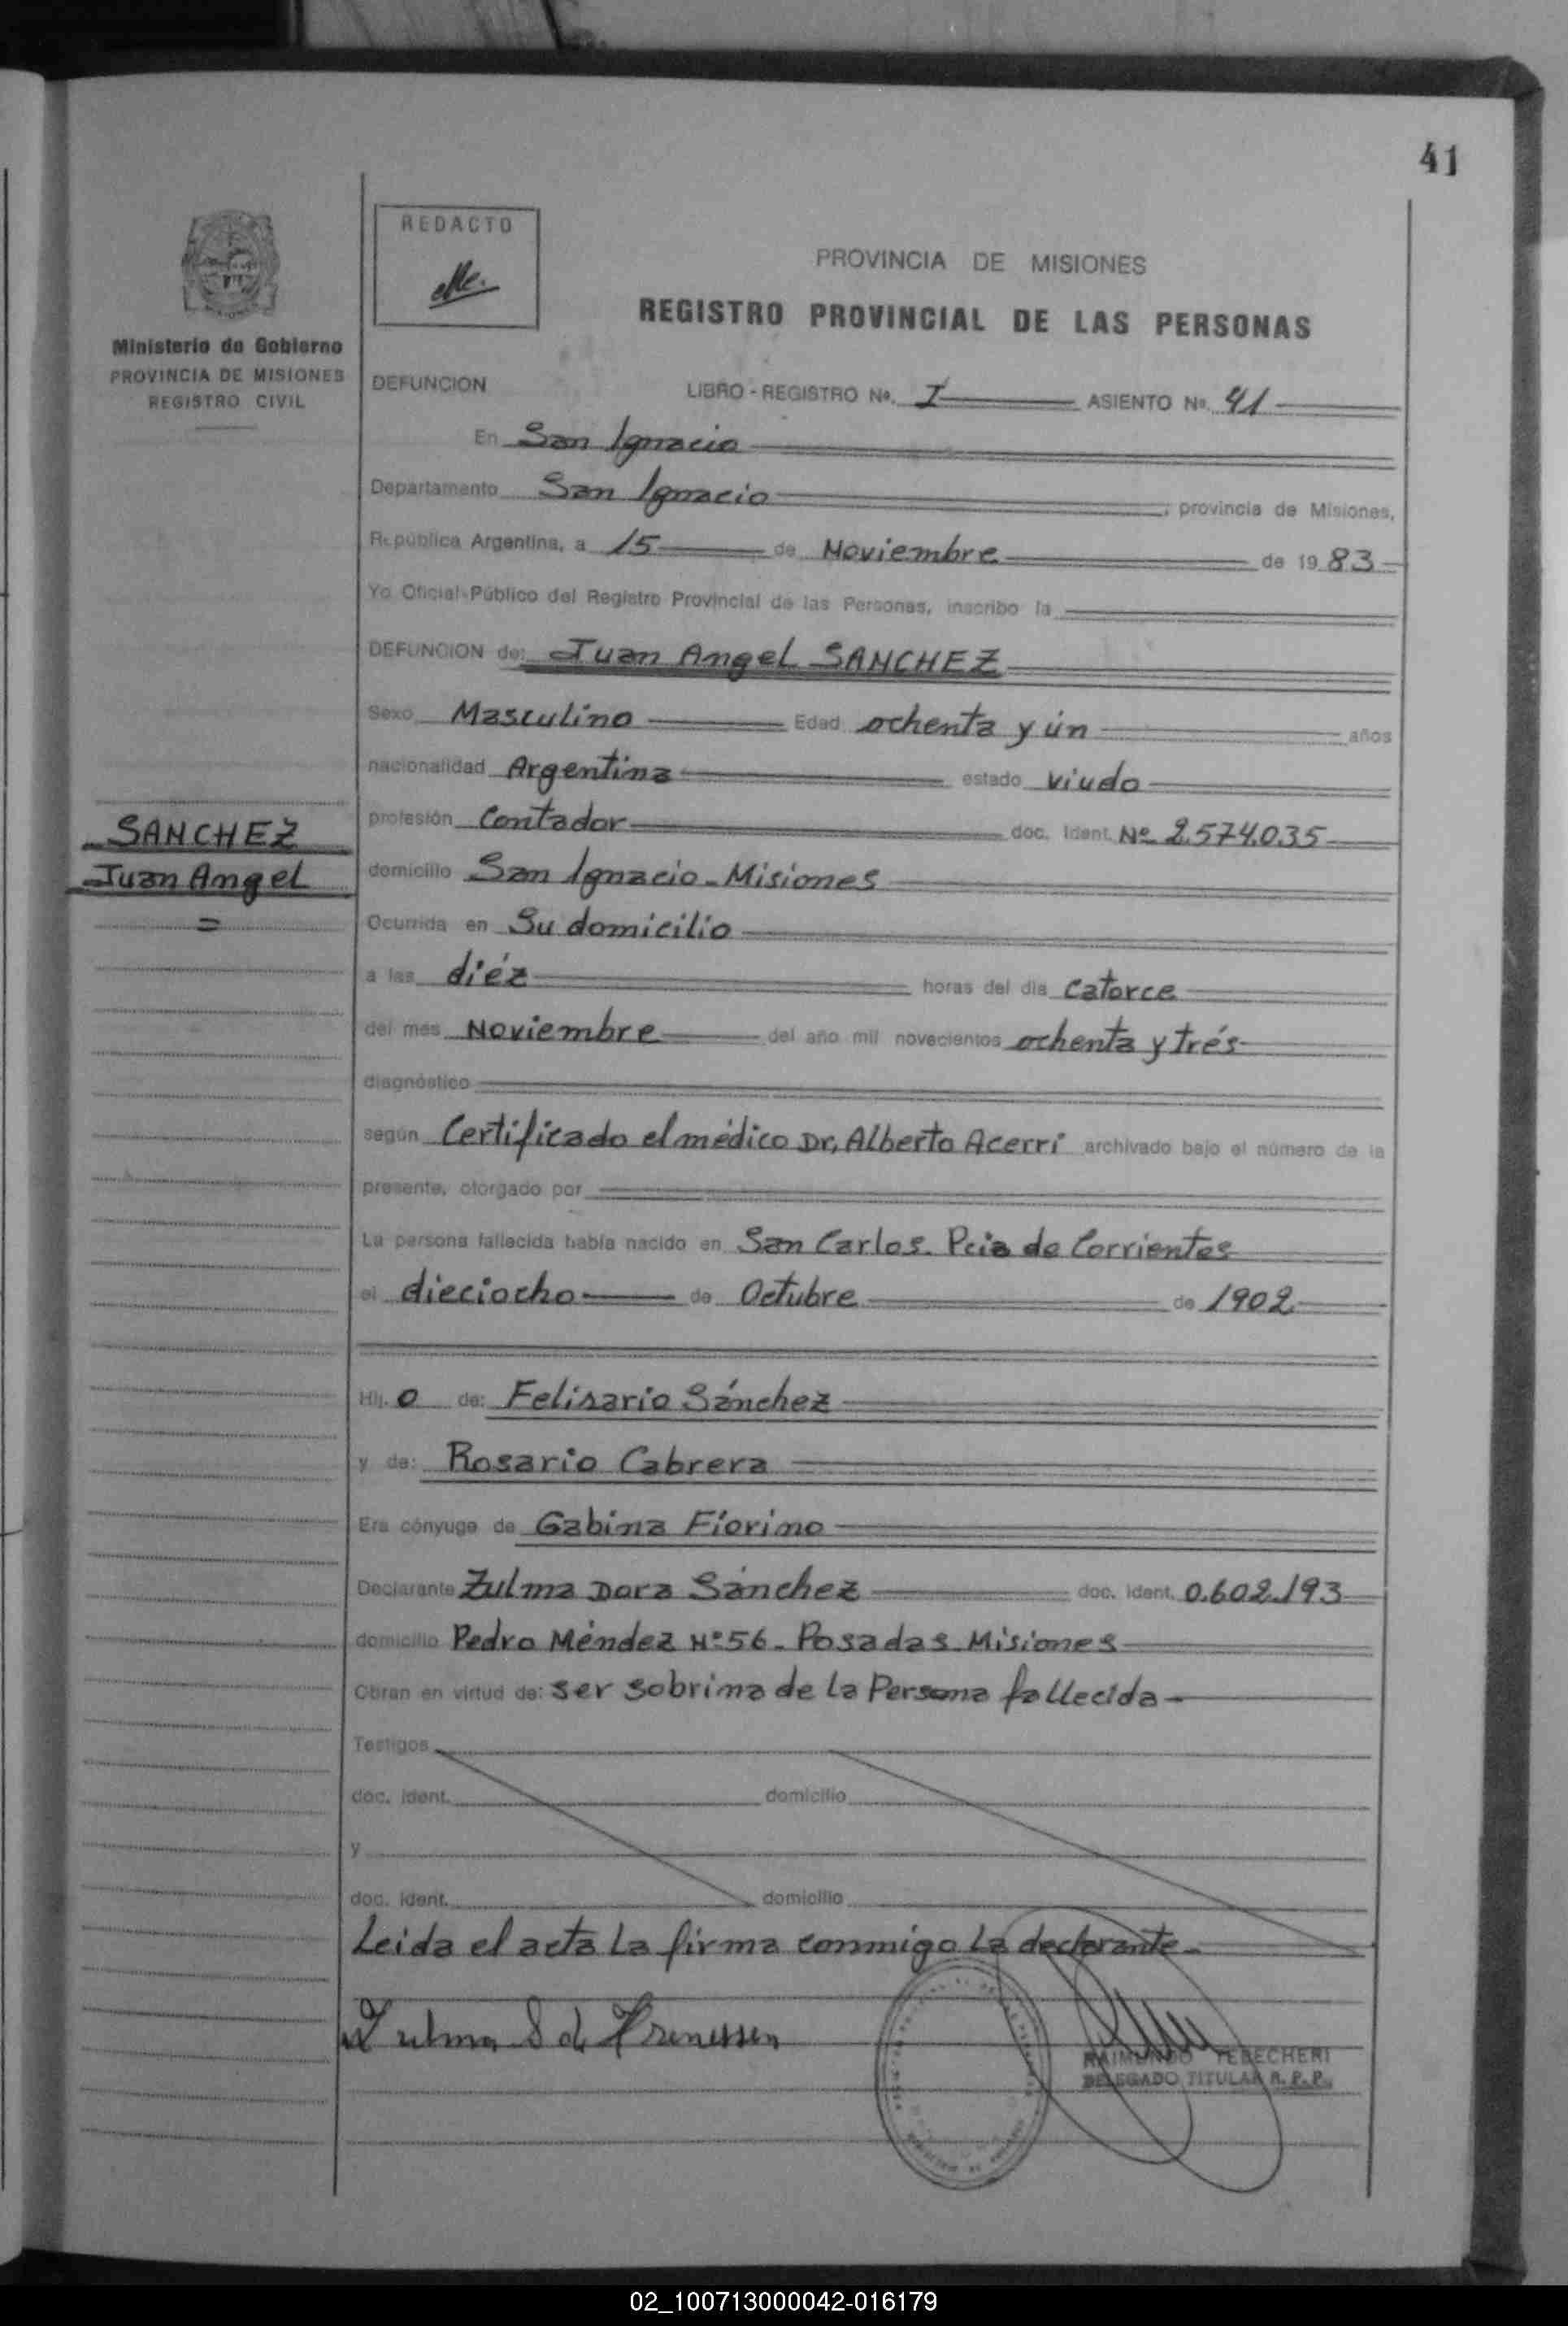 41
REDACTO
PROVINCIA DE MISIONES
REGISTRO PROVINCIAL DE LAS PERSONAS
Ministerio de Gobierno
PROVINCIA DE MISIONES
REGISTRO CIVIL
DEFUNCION LIBRO - REGISTRO Nº. I ASIENTO Nº. 41
En San Ignacio
Departamento San Ignacio, provincia de Misiones,
República Argentina, a 15 de Noviembre de 1983
Yo Oficial Público del Registro Provincial de las Personas, inscribo la
DEFUNCION de: Juan Angel SANCHEZ
Sexo Masculino Edad ochenta y ún años
nacionalidad Argentina estado viudo
profesión Contador doc. Ident. Nº 2.574.035
SANCHEZ
Juan Angel
=
domicilio San Ignacio - Misiones
Ocurrida en Su domicilio
a las diéz horas del día catorce
del mes Noviembre del año mil novecientos ochenta y trés
diagnóstico
según Certificado el médico Dr, Alberto Acerri archivado bajo el número de la
presente, otorgado por
La persona fallecida había nacido en San Carlos. Pcia de Corrientes
el dieciocho de Octubre de 1902
Hij. o de: Felisario Sánchez
y de: Rosario Cabrera
Era cónyuge de Gabina Fiorino
Declarante Zulma Dora Sánchez doc. ident. 0.602.193
domicilio Pedro Méndez Nº 56 - Posadas Misiones
Obran en virtud de: ser sobrina de la Persona fallecida -
Testigos
doc. ident. domicilio
y
doc. ident. domicilio
Leida el acta la firma conmigo la declarante -
Zulma S de
RAIMUNDO YEBECHERI
DELEGADO TITULAR R. P. P.
02_100713000042-016179